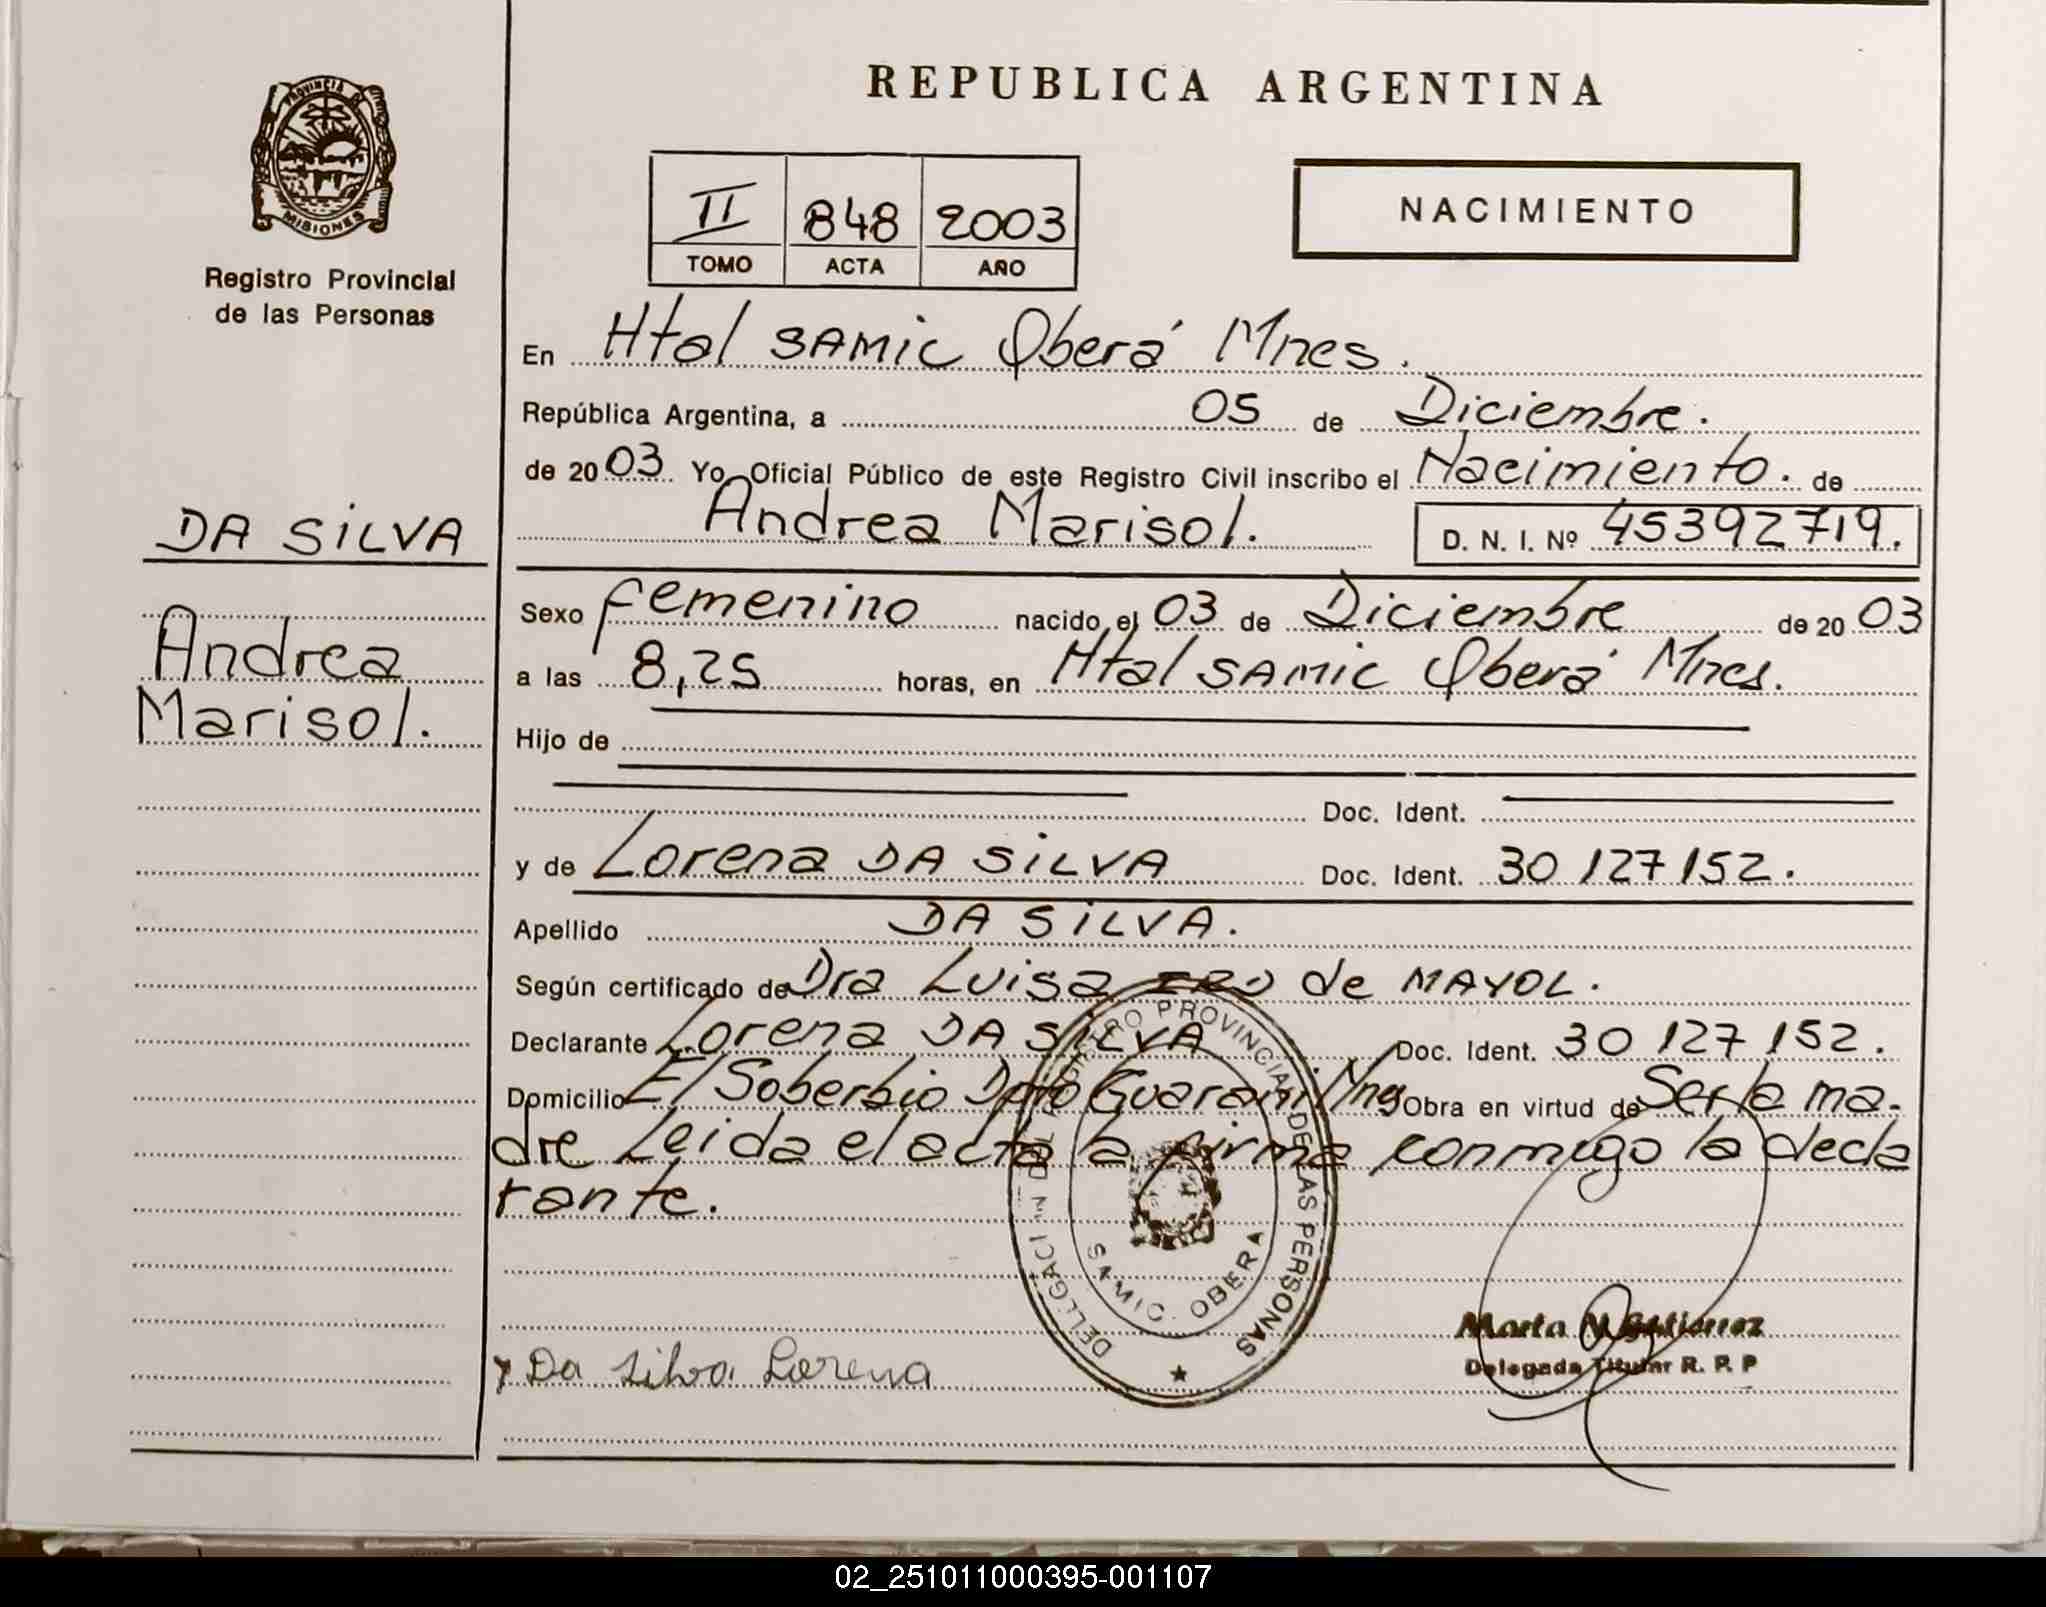 REPUBLICA ARGENTINA
PROVINCIA DE
MISIONES
Registro Provincial
de las Personas
II 848 2003
TOMO ACTA AÑO
NACIMIENTO
DA SILVA
Andrea
Marisol.
En Htal SAMIC Oberá Mnes.
República Argentina, a 05 de Diciembre.
de 2003 Yo Oficial Público de este Registro Civil inscribo el Nacimiento. de
Andrea Marisol. D. N. I. Nº 45392719.
Sexo femenino nacido el 03 de Diciembre de 2003
a las 8,25 horas, en Htal SAMIC Oberá Mnes.
Hijo de
Doc. Ident.
y de Lorena DA SILVA Doc. Ident. 30 127 152.
Apellido DA SILVA.
Según certificado de Dra Luisa de MAYOL.
Declarante Lorena DA SILVA Doc. Ident. 30 127 152.
Domicilio El Soberbio Dpto Guaraní Obra en virtud de Ser la ma-
dre Leida el acta la firma conmigo la decla
rante.
PROVINCIAL DE LAS PERSONAS
SAMIC OBERA
Marta
Delegada Titular R. P. P
Da Silva Lorena
02_251011000395-001107